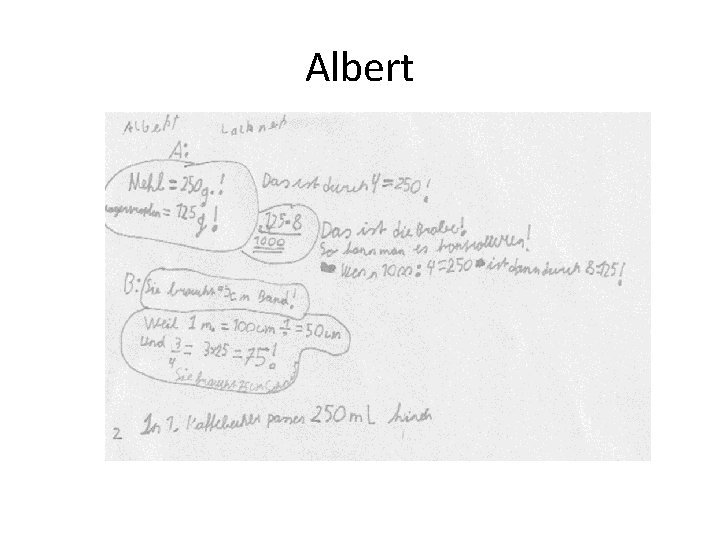 Albert
Albert
A:
Mehl = 250g.! Das ist durch 4 = 250!
= 125g!
125·8
1000
Das ist die Probe!
So kann man es kontrollieren!
Wenn 1000:4=250 ist dann durch 8=125!
B: Sie braucht cm Band!
Weil 1 m. = 100cm = 50cm
und 3/4 = 3x25 = 75!
Sie braucht 75cm
2 In 1. Kaffebecher passen 250 mL hinein